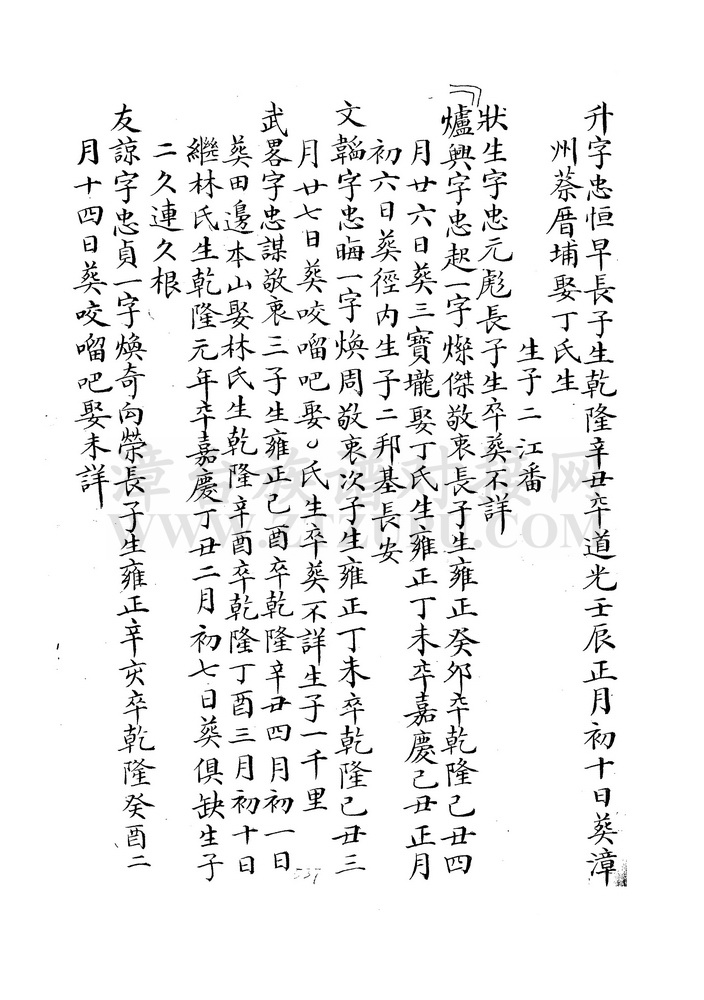 升字忠恒早長子生乾隆辛丑卒道光壬辰正月初十日葵漳
州蔡厝埔娶丁氏生
生子二江番
狀生字忠元彪長子生卒葵不詳
爐興字忠起一字燦傑敬衷長子生雍正癸卯卒乾隆己丑四
月廿六日葵三寶壠娶丁氏生雍正丁未卒嘉慶己丑正月
初六日葵徑内生子二邦基長安
文韜字忠晦一字煥周敬衷次子生雍正丁未卒乾隆己丑三
月廿七日葵咬𠺕吧娶乚氏生卒葵不詳生子一千里
武畧字忠謀敬衷三子生雍正己酉卒乾隆辛丑四月初一日
葵田邊本山娶林氏生乾隆辛酉卒乾隆丁酉三月初十日
繼林氏生乾隆元年卒嘉慶丁丑二月初七日葵俱缺生子
二久連久根
友諒字忠貞一字煥奇向榮長子生雍正辛亥卒乾隆癸酉二
月十四日葵咬𠺕吧娶未詳
漳台族谱对接网
WWW.ZTZUPU.COM
537